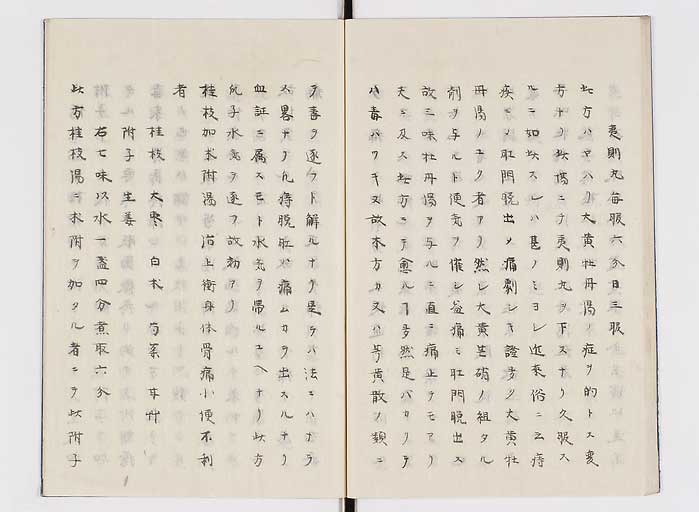 夷則丸毎服六分日三服
此方ハマハリ大黄牡丹湯ノ症ヲ的トス変
方ナリ此場ニテ夷則丸ヲ下スナリ久服ス
ルニ如此スレハ甚ノミヨシ近来俗ニ云痔
疾ニメ肛門脱出メ痛劇シキ證多ク大黄牡
丹湯ノユク者アリ然レ大黄芒硝ノ組タル
剤ヲ与ルト便意ヲ催シ益痛ミ肛門脱出ス
故ニ味牡丹湯ヲ与ルニ直ニ痛止ラモアリ
夫ニ及ス此方ニテ愈ルヿ多然是バカリテ
ハ毒ハワキヌ故本方カ又ハ芎黄散ノ類ニ
テ毒ヲ逐ヲト解ルナリ是テハ法ニハナラ
ス畧ナリ凡痔脱肛ハ痛ムカヲ出スルナリ
血証ニ属スモト水気ヲ帯ルユヘナリ此方
瓜子水気ヲ逐フ故効アリ
桂枝加朮附湯 治上衝身体骨痛小便不利
者
桂枝 大棗 白朮 芍薬 甘艸
附子 生姜
右七味以水一盞四分煮取六分
此方桂枝湯ニ朮附ヲ加タル者ニテ此附子